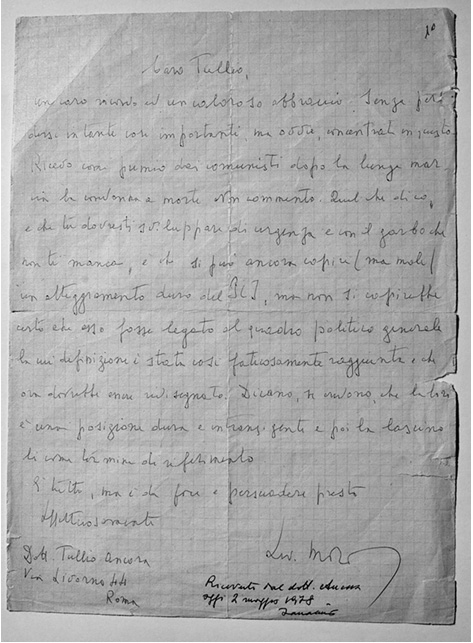 10
Caro Tullio,
un caro ricordo ed un caloroso abbraccio. Senza per
dersi in tante cose importanti, ma ovvie, concentrati in questo
Ricevo come premio dai comunisti dopo la lunga mar
cia la condanna a morte. Non commento. Quel che dico,
e che tu dovresti sviluppare di urgenza e con il garbo che
non ti manca, è che si può ancora capire (ma male)
un atteggiamento duro del PCI, ma non si capirebbe
certo che esso fosse legato al quadro politico generale
la cui definizione è stata così faticosamente raggiunta e che
ora dovrebbe essere ridisegnato. Dicano, se credono, che la loro
è una posizione dura e intransigente e poi la lascino
lì come termine di riferimento
È tutto, ma è da fare e persuadere presto
Affettuosamente
Moro
Dott. Tullio Ancora
Via Livorno 44
Roma
Ricevuta dal dott. Ancora
oggi 2 maggio 1978